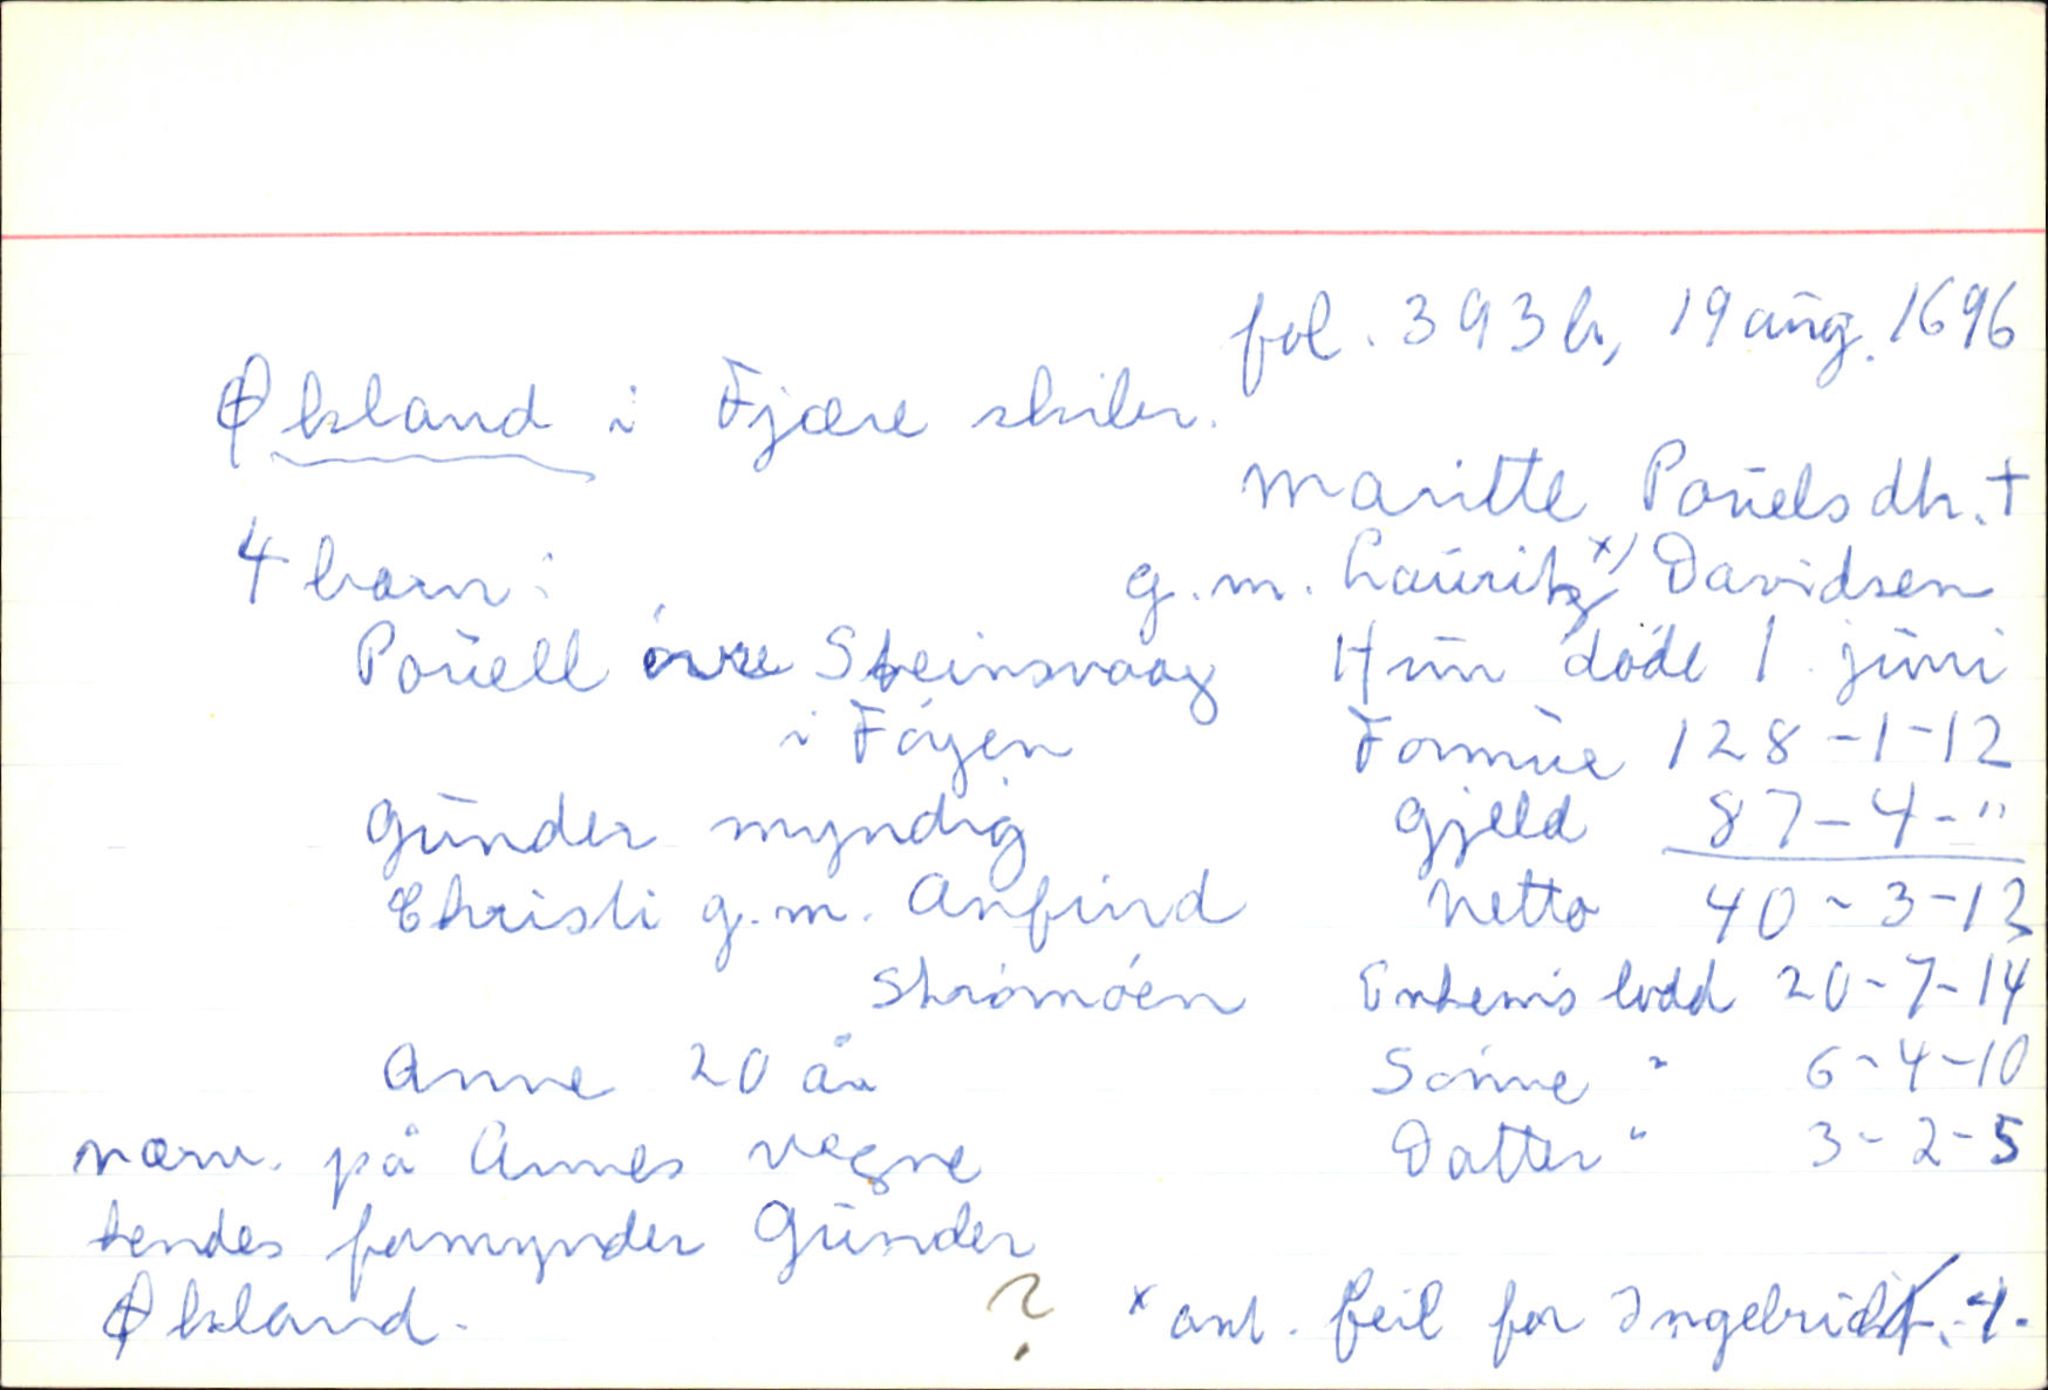 fol. 393b, 19 aug. 1696
Økland i Fjære skibr.
Maritte Pouels dtr. †
4 barn: g.m. Lauritz x) Davidsen
Pouell övre Steinsvaag Hun döde 1 juni
i Föyen Formue 128-1-12
Gunder myndig Gjeld 87-4-"
Christi g.m. Anfind Netto 40-3-12
Strömöen Enkem's lodd 20-7-14
Anne 20 år Sönne " 6-4-10
nærv. på Annes vegne Datter " 3-2-5
hendes formynder Gunder
Økland. ? x ant. feil for Ingebrict